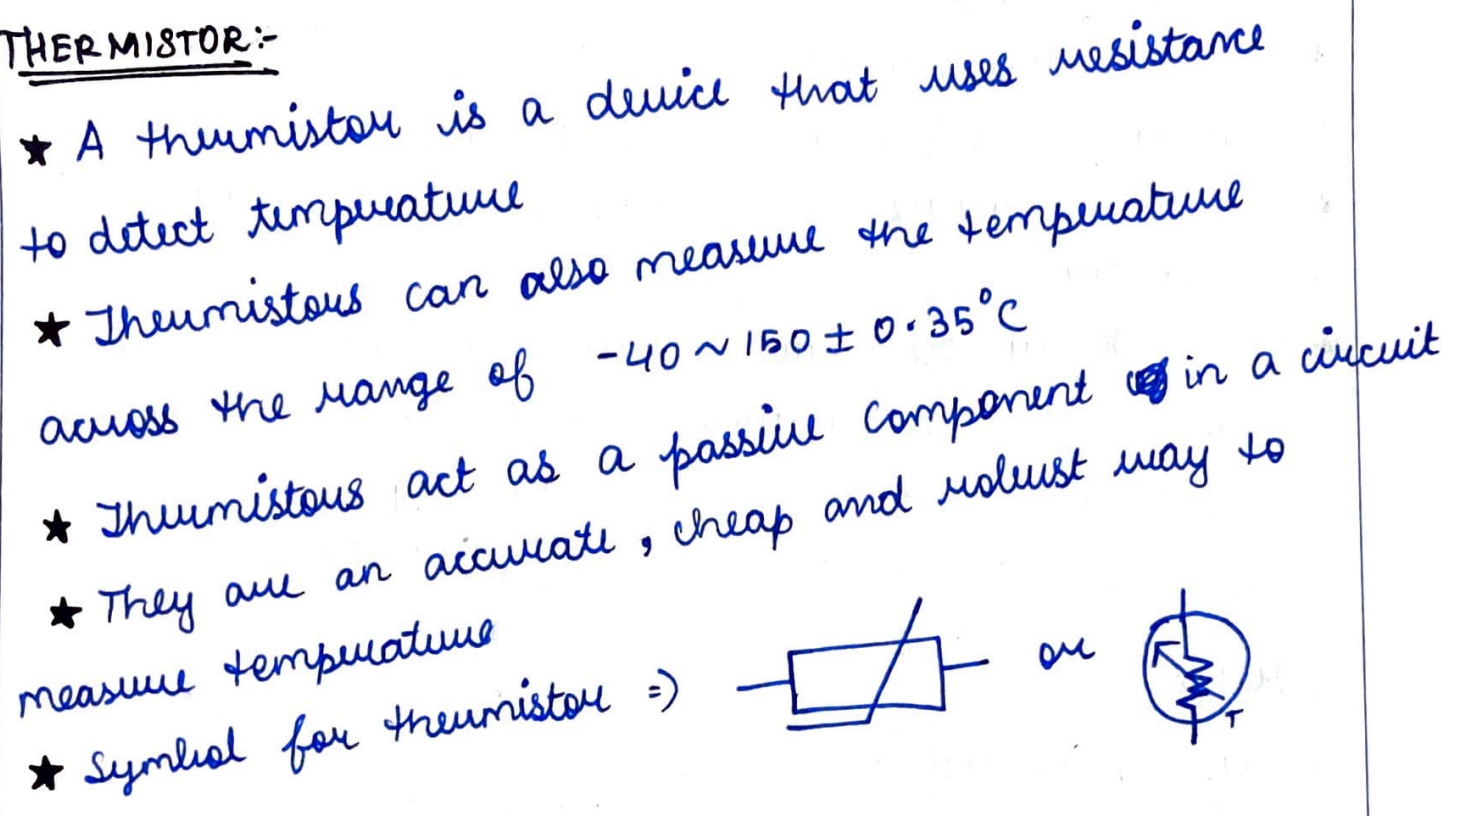 THERMISTOR:-
★ A thermistor is a device that uses resistance
to detect temperature
★ Thermistors can also measure the temperature
across the range of -40 ~ 150 ± 0.35°C
★ Thermistors act as a passive component in a circuit
★ They are an accurate, cheap and robust way to
measure temperature
★ Symbol for thermistor => or
T